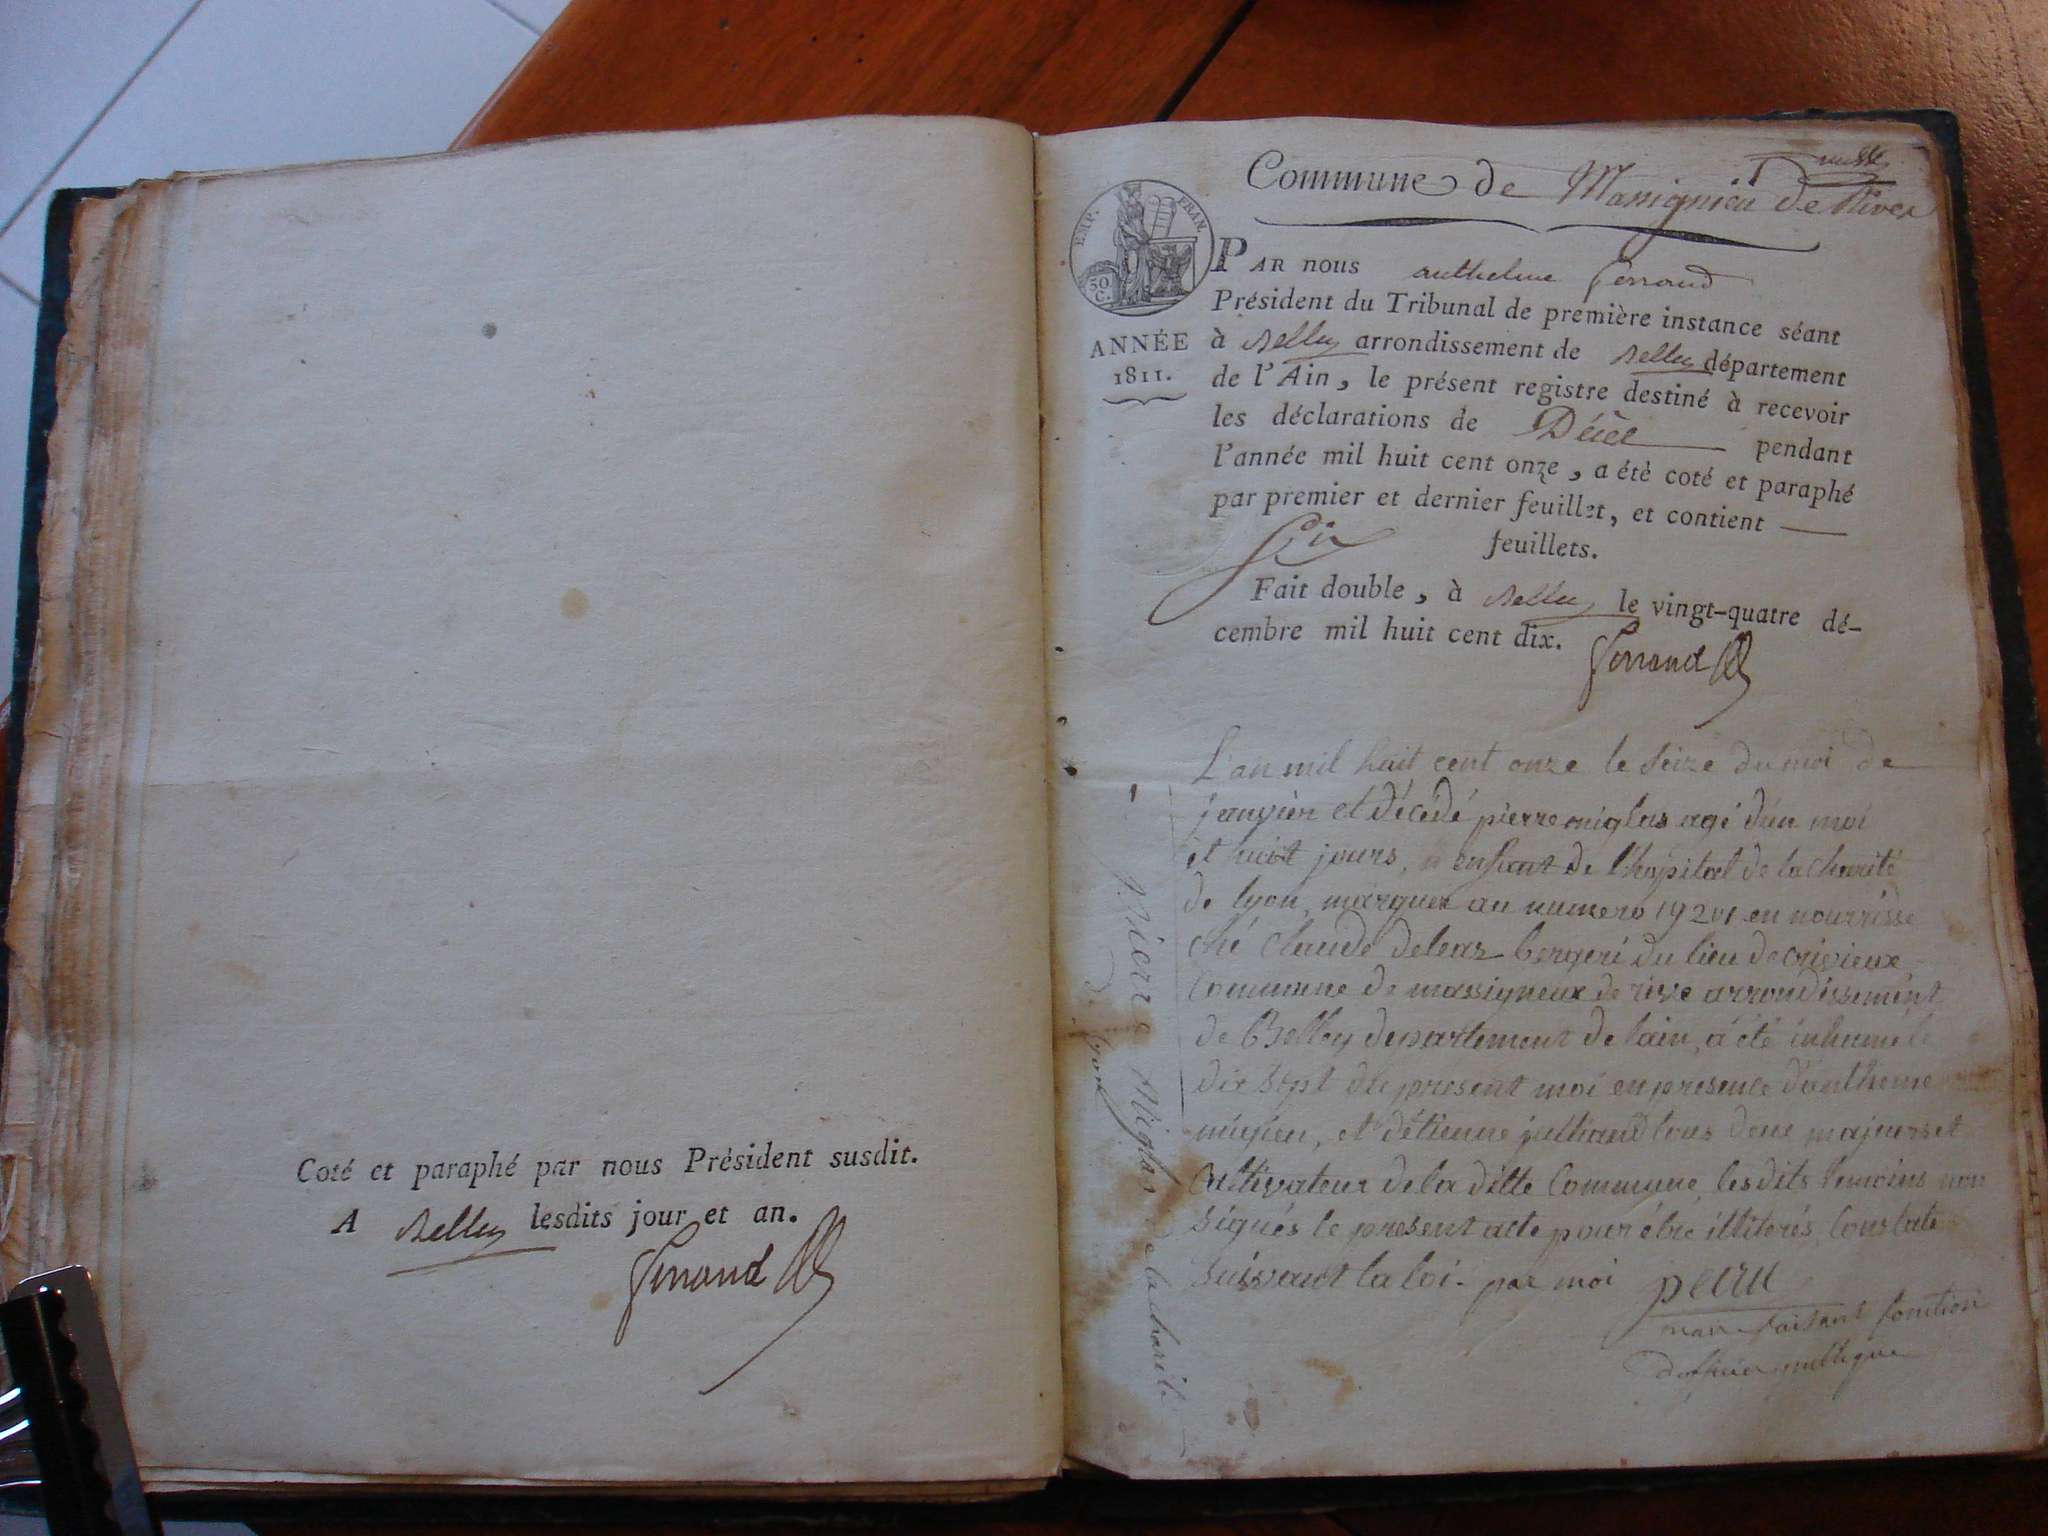 Coté et paraphé par nous Président susdit.
A Belley lesdits jour et an.
Ferrand
Commune de Massignieu de Rives
EMP. FRAN.
50 C.
ANNÉE
1811.
PAR nous anthelme ferrand
Président du Tribunal de première instance séant
à Belley arrondissement de Belley département
de l'Ain, le présent registre destiné à recevoir
les déclarations de Décès pendant
l'année mil huit cent onze, a été coté et paraphé
par premier et dernier feuillet, et contient
Six feuillets.
Fait double, à Belley le vingt-quatre dé-
cembre mil huit cent dix.
Ferrand
1
pierre Miglas de la charité
De lyon
L'an mil huit cent onze le seize du moi de
janvier et décédé pierre miglas agé d'un moi
et huit jours, enfant de l'hopital de la charité
de lyon, marquez au numero 19201 en nourrisse
ché claude deleaz bergeri du lieu de crivieux
Commune de massigneux de rive arrondissement
de Belley departement de lain, a été inhumé le
dix sept du present moi en presence d'antheme
et d'étienne julliand tous deux majeurs et
cultivateur de la ditte Commune, les dits temoins non
signés le present acte pour étre illiterés, Constate
suivant la loi. par moi peru
maire faisant fonction
d'officier publique